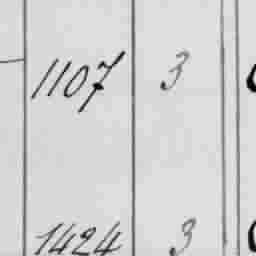 1107 3
1424 3